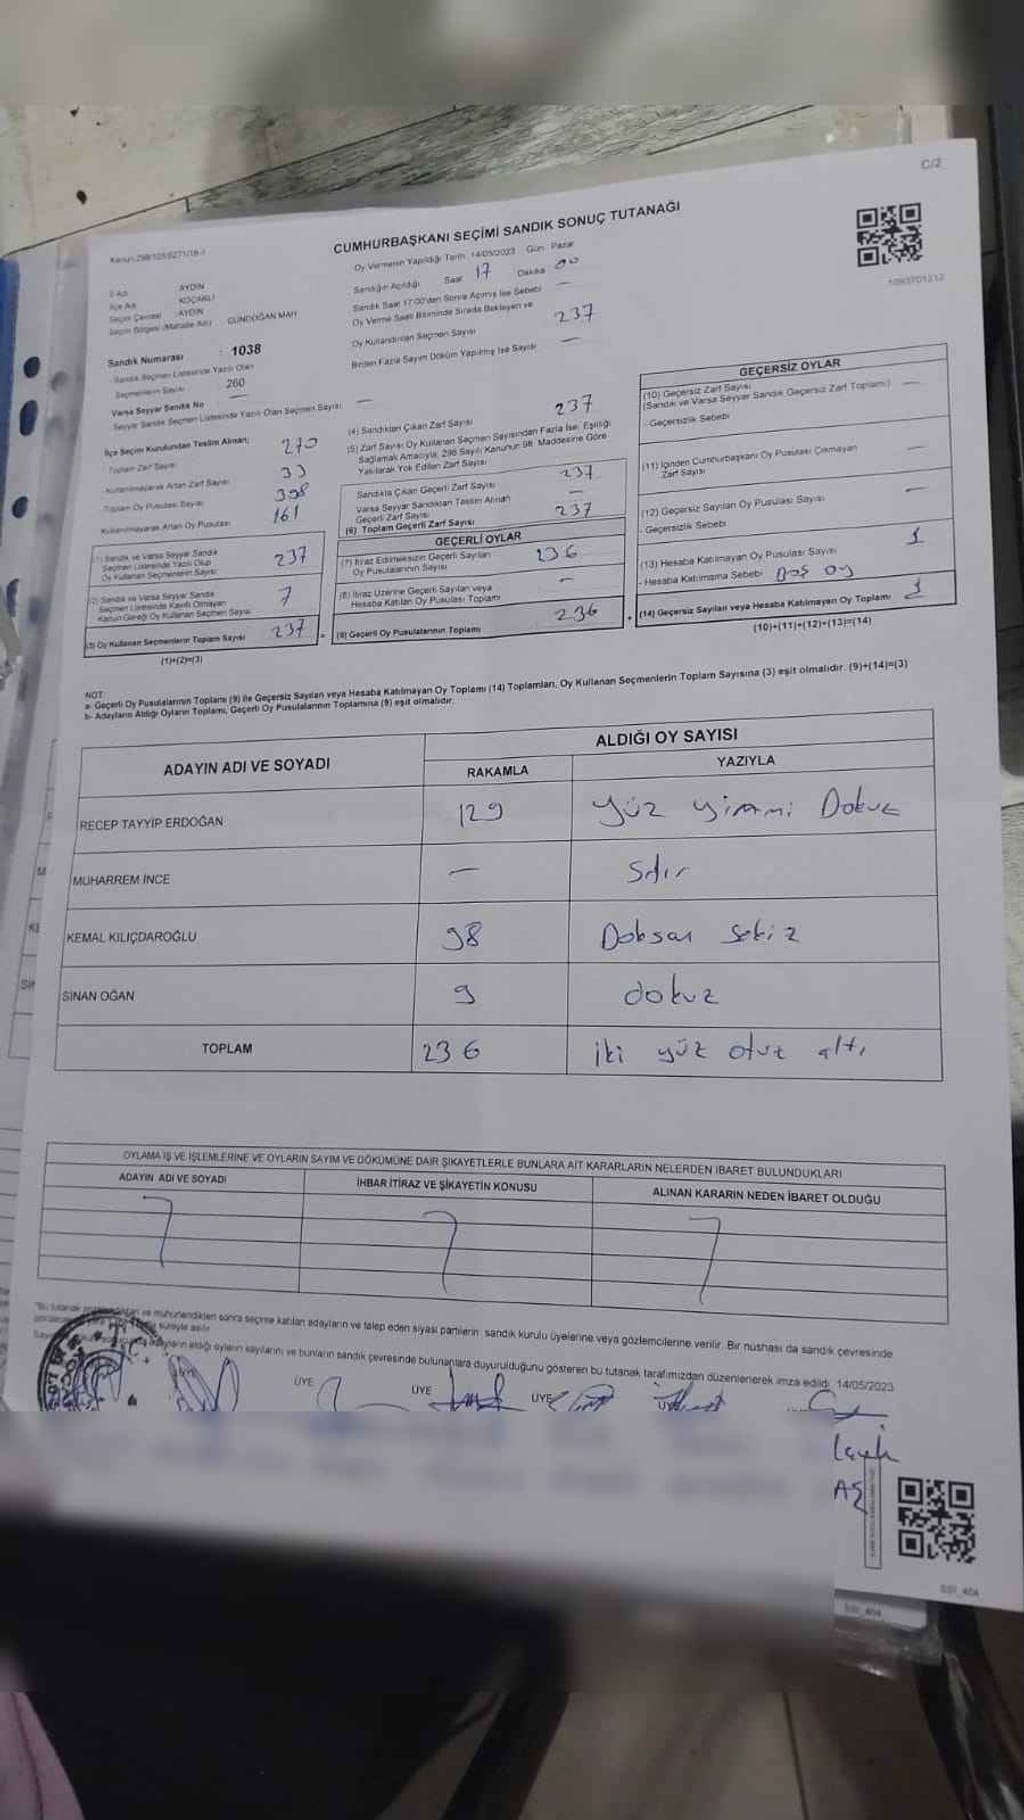 C/2
CUMHURBAŞKANI SEÇİMİ SANDIK SONUÇ TUTANAĞI
Oy Vermenin Yapıldığı Tarih 14/05/2023 Gün: Pazar
İl Adı AYDIN
İlçe Adı KOÇARLI
Seçim Çevresi :AYDIN
Seçim Bölgesi (Mahalle Adı) : GÜNDOĞAN MAH
Sandık Numarası : 1038
Sandık Seçmen Listesinde Yazılı Olan
Seçmenlerin Sayısı 260
Varsa Seyyar Sandık No —
Seyyar Sandık Seçmen Listesinde Yazılı Olan Seçmen Sayısı —
İlçe Seçim Kurulundan Teslim Alınan;
Toplam Zarf Sayısı 270
Kullanılmayarak Artan Zarf Sayısı 33
Toplam Oy Pusulası Sayısı 398
Kullanılmayarak Artan Oy Pusulası 161
(1) Sandık ve Varsa Seyyar Sandık
Seçmen Listesinde Yazılı Olup
Oy Kullanan Seçmenlerin Sayısı 237
(2) Sandık ve Varsa Seyyar Sandık
Seçmen Listesinde Kayıtlı Olmayan
Kanun Gereği Oy Kullanan Seçmen Sayısı
(3) Oy Kullanan Seçmenlerin Toplam Sayısı 237 =
(1)+(2)=(3)
Sandığın Açıldığı Saat 17 Dakika 00
Sandık Saat 17:00'den Sonra Açılmış İse Sebebi —
Oy Verme Saati Bitiminde Sırada Bekleyen ve
Oy Kullandırılan Seçmen Sayısı 237
Birden Fazla Sayım Döküm Yapılmış İse Sayısı —
(4) Sandıktan Çıkan Zarf Sayısı 237
(5) Zarf Sayısı Oy Kullanan Seçmen Sayısından Fazla İse, Eşitliği
Sağlamak Amacıyla, 298 Sayılı Kanunun 98. Maddesine Göre
Yakılarak Yok Edilen Zarf Sayısı
Sandıkta Çıkan Geçerli Zarf Sayısı 237
Varsa Seyyar Sandıktan Teslim Alınan
Geçerli Zarf Sayısı —
(6) Toplam Geçerli Zarf Sayısı 237
GEÇERLİ OYLAR
(7) İtiraz Edilmeksizin Geçerli Sayılan
Oy Pusulalarının Sayısı 236
(8) İtiraz Üzerine Geçerli Sayılan veya
Hesaba Katılan Oy Pusulası Toplamı —
(9) Geçerli Oy Pusulalarının Toplamı 236 +
GEÇERSİZ OYLAR
(10) Geçersiz Zarf Sayısı
(Sandık ve Varsa Seyyar Sandık Geçersiz Zarf Toplamı) —
- Geçersizlik Sebebi
(11) İçinden Cumhurbaşkanı Oy Pusulası Çıkmayan
Zarf Sayısı —
(12) Geçersiz Sayılan Oy Pusulası Sayısı —
- Geçersizlik Sebebi
(13) Hesaba Katılmayan Oy Pusulası Sayısı 1
- Hesaba Katılmama Sebebi Boş oy
(14) Geçersiz Sayılan veya Hesaba Katılmayan Oy Toplamı 1
(10)+(11)+(12)+(13)=(14)
NOT:
a- Geçerli Oy Pusulalarının Toplamı (9) ile Geçersiz Sayılan veya Hesaba Katılmayan Oy Toplamı (14) Toplamları, Oy Kullanan Seçmenlerin Toplam Sayısına (3) eşit olmalıdır. (9)+(14)=(3)
b- Adayların Aldığı Oyların Toplamı, Geçerli Oy Pusulalarının Toplamına (9) eşit olmalıdır.
ADAYIN ADI VE SOYADI
ALDIĞI OY SAYISI
RAKAMLA YAZIYLA
RECEP TAYYİP ERDOĞAN 129 yüz yirmi Dokuz
MUHARREM İNCE — Sıfır
KEMAL KILIÇDAROĞLU 98 Doksan Sekiz
SİNAN OĞAN 9 dokuz
TOPLAM 236 iki yüz otuz altı
OYLAMA İŞ VE İŞLEMLERİNE VE OYLARIN SAYIM VE DÖKÜMÜNE DAİR ŞİKAYETLERLE BUNLARA AİT KARARLARIN NELERDEN İBARET BULUNDUKLARI
ADAYIN ADI VE SOYADI İHBAR İTİRAZ VE ŞİKAYETİN KONUSU ALINAN KARARIN NEDEN İBARET OLDUĞU
ve mühürlendikten sonra seçime katılan adayların ve talep eden siyasi partilerin, sandık kurulu üyelerine veya gözlemcilerine verilir. Bir nüshası da sandık çevresinde
süreyle asılır.
adayların aldığı oyların sayılarını ve bunların sandık çevresinde bulunanlara duyurulduğunu gösteren bu tutanak tarafımızdan düzenlenerek imza edildi. 14/05/2023
ÜYE ÜYE ÜYE
SSI_404